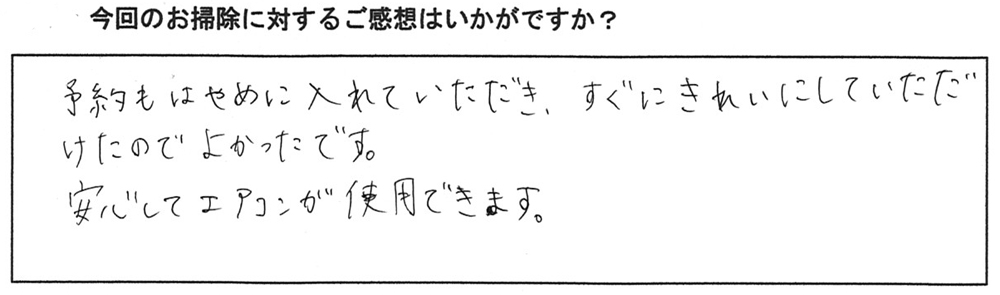 今回のお掃除に対するご感想はいかがですか？
予約もはやめに入れていただき、すぐにきれいにしていただだ
けたのでよかったです。
安心してエアコンが使用できます。